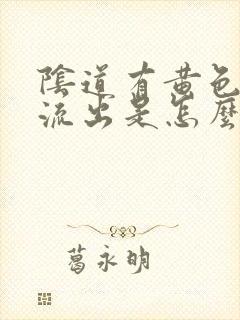 陰道有黃色
流出是怎麼
葛永明